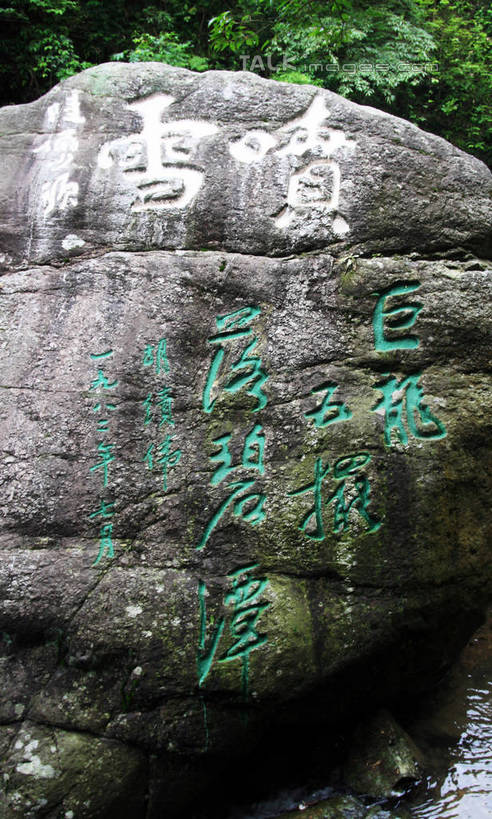 TALK images.com
噴雪
巨龍
五擺
落碧潭
胡績伟
一九八二年七月